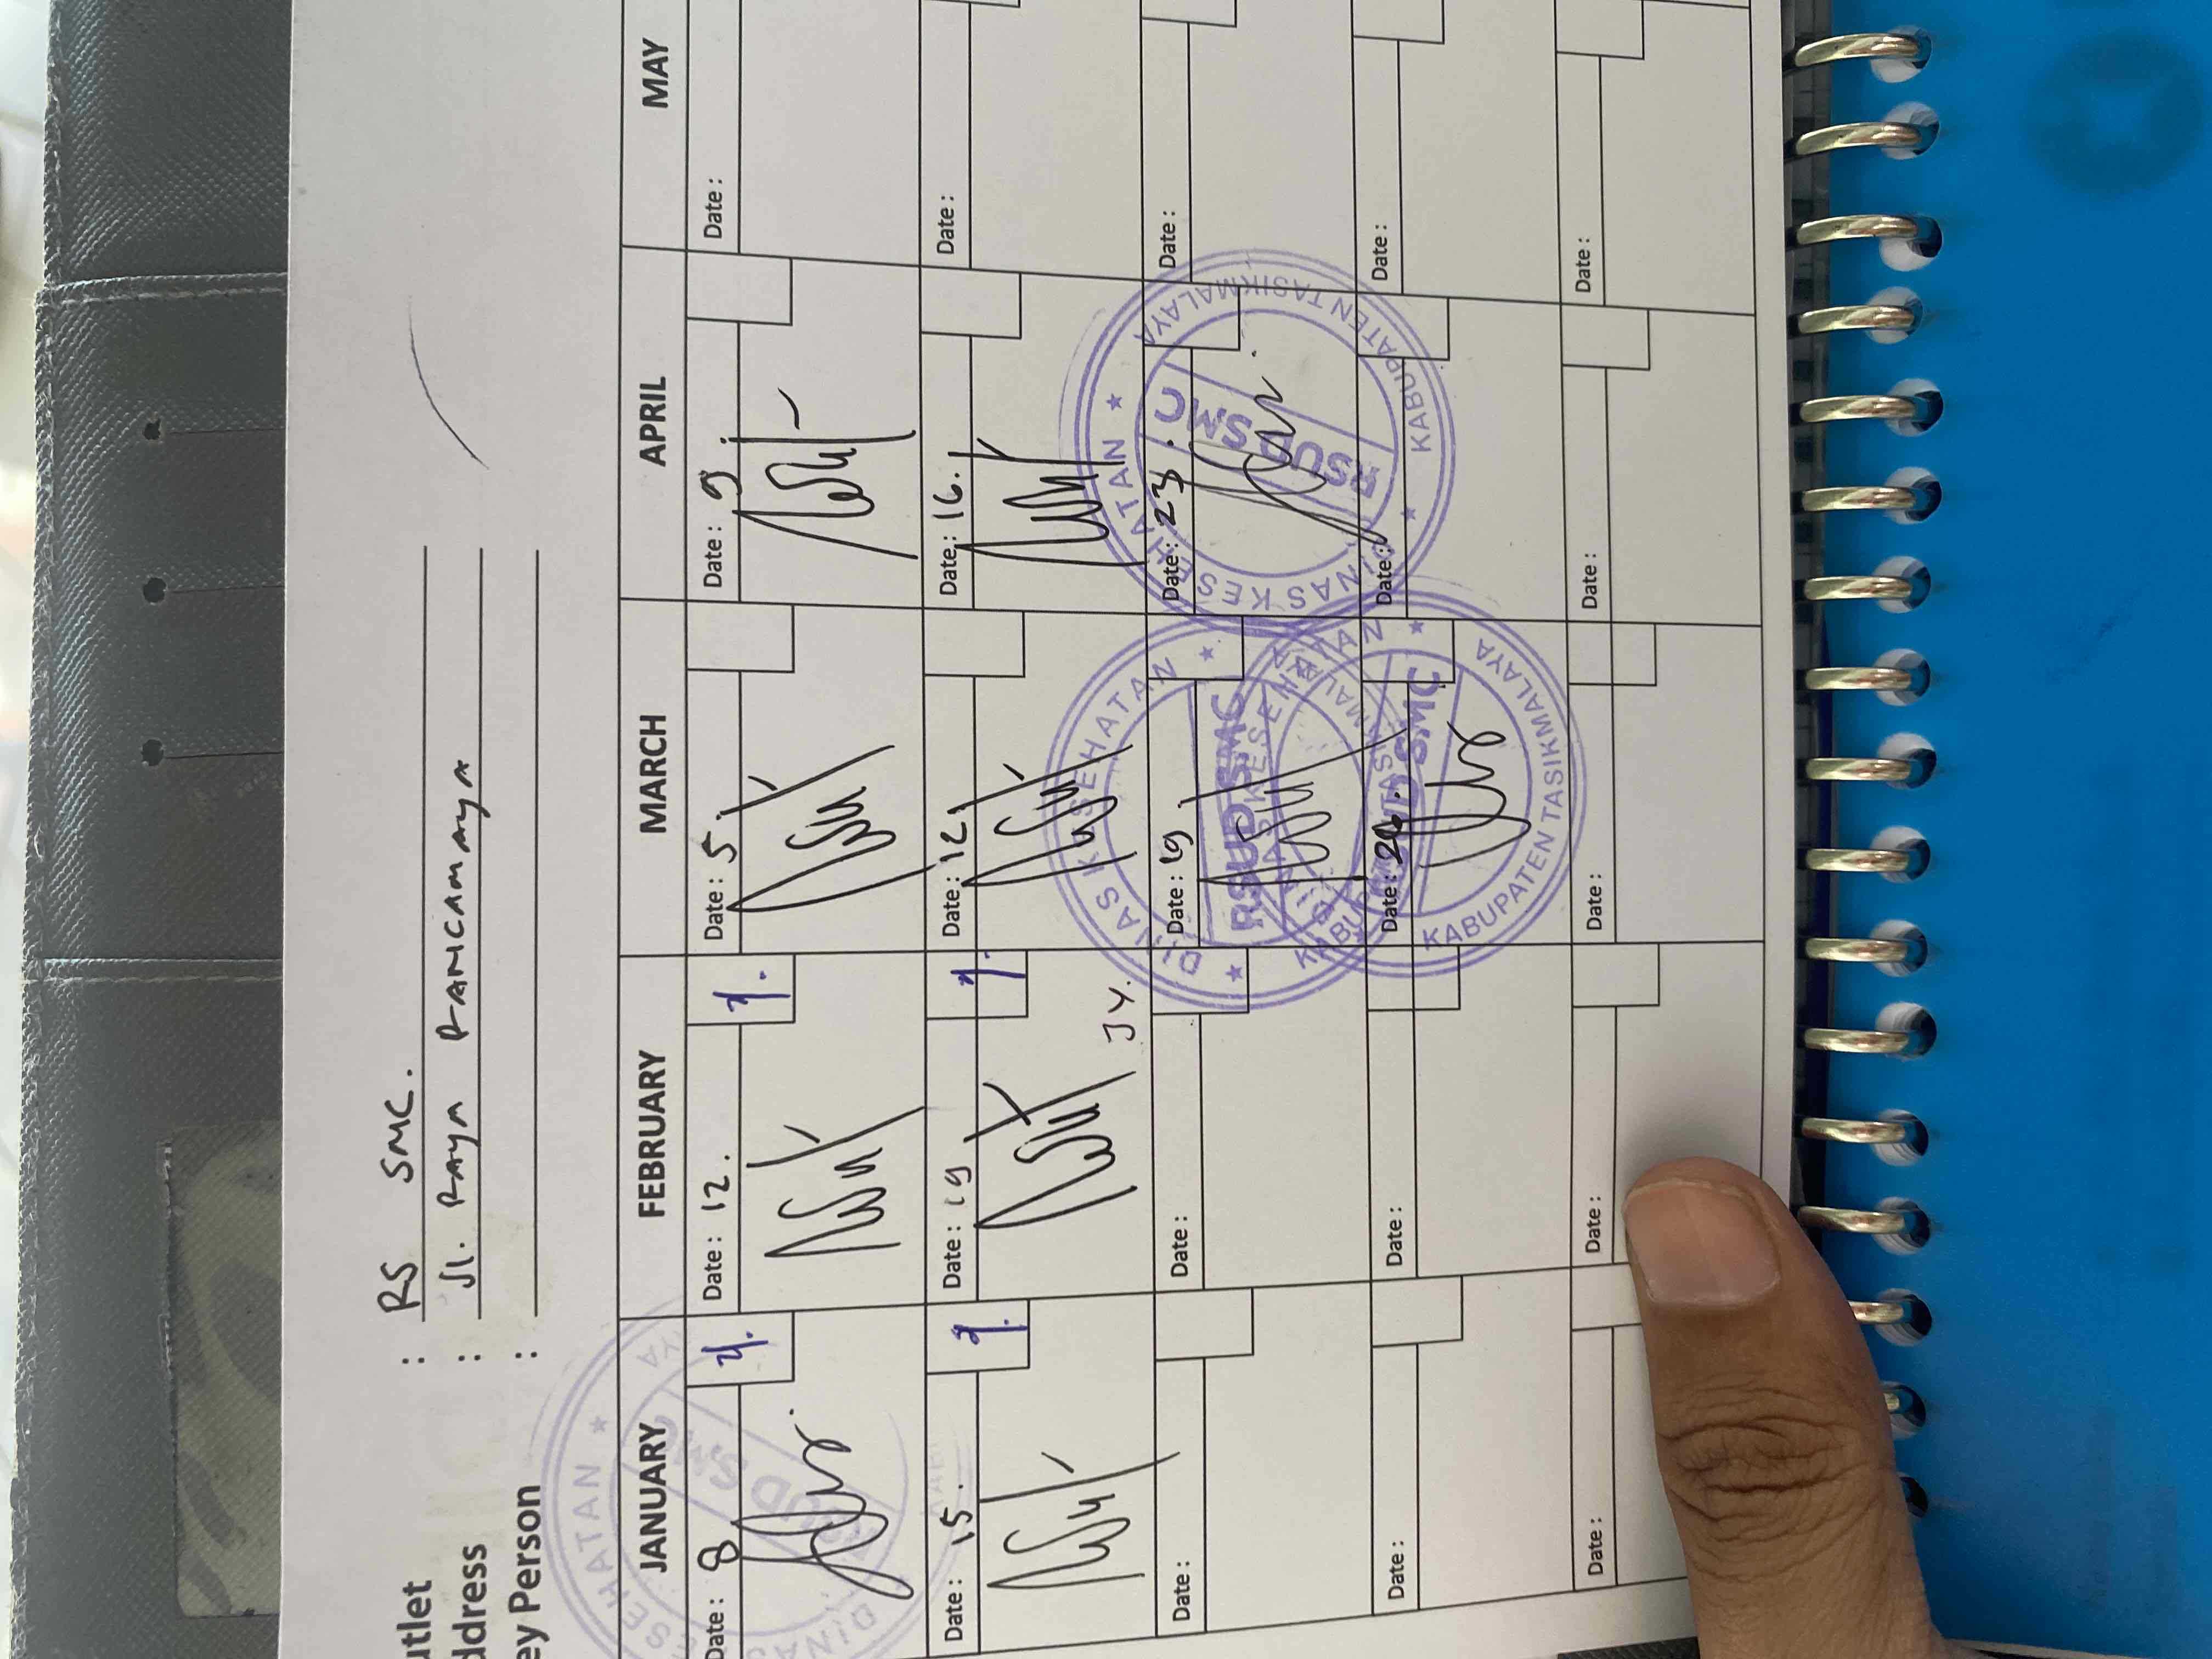 utlet : RS SMC.
ddress : Jl. Raya Pancamaya
ey Person :
JANUARY FEBRUARY MARCH APRIL MAY
Date : 8 Date : 12. Date : 5 Date : 9. Date :
Date : 15. Date : 19 Date : 12. Date : 16. Date :
JY.
Date : Date : Date : 19 Date : 23. Date :
Date : Date : Date : 26. Date : Date :
Date : Date : Date : Date : Date :
DINAS KESEHATAN
RSUD SMC
DINAS KESEHATAN
RSUD SMC
KABUPATEN TASIKMALAYA
DINAS KESEHATAN
RSUD SMC
KABUPATEN TASIKMALAYA
DINAS KESEHATAN
RSUD SMC
KABUPATEN TASIKMALAYA